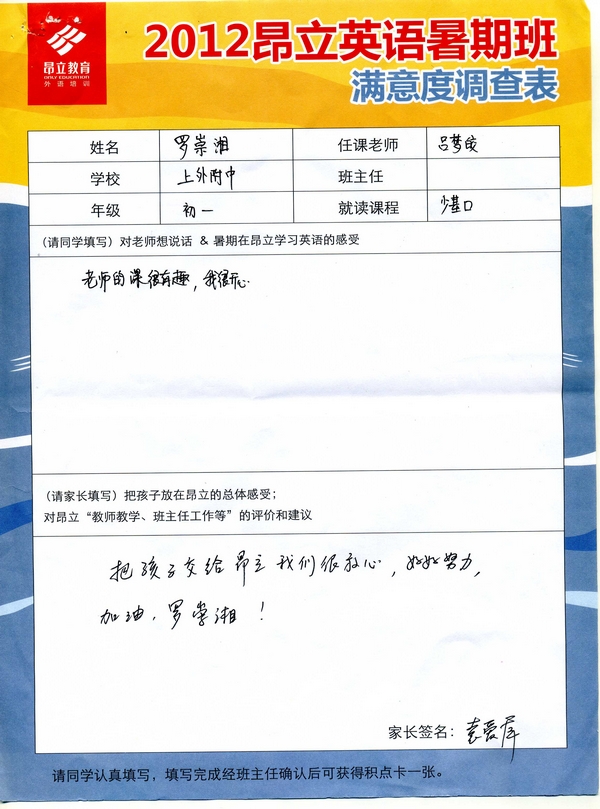 昂立教育
ONLY EDUCATION
外语培训
2012昂立英语暑期班
满意度调查表
姓名 罗崇湘 任课老师 吕梦
学校 上外附中 班主任
年级 初一 就读课程 少基口
(请同学填写) 对老师想说话 & 暑期在昂立学习英语的感受
老师的课很有趣，我很开心
(请家长填写) 把孩子放在昂立的总体感受；
对昂立“教师教学、班主任工作等”的评价和建议
把孩子交给昂立我们很放心，好好努力，
加油，罗崇湘！
家长签名：袁爱萍
请同学认真填写，填写完成经班主任确认后可获得积点卡一张。